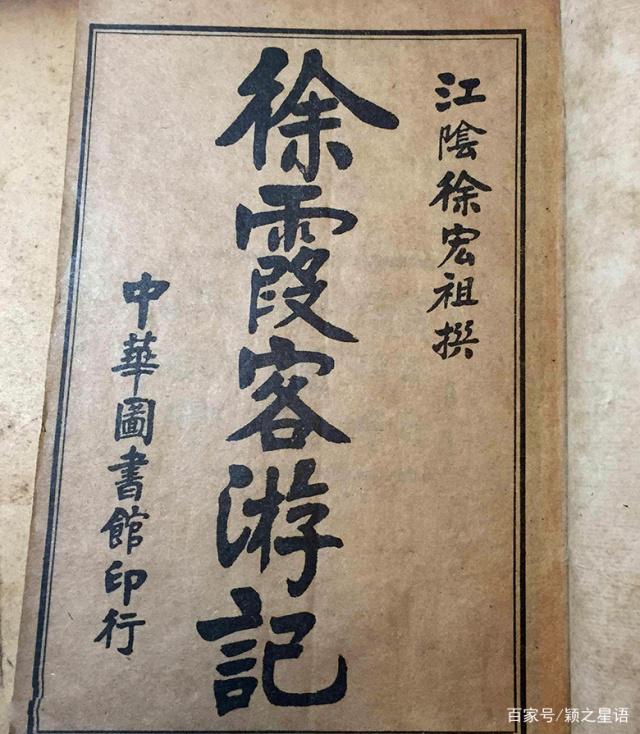 江陰徐宏祖撰
徐霞客游記
中華圖書館印行
百家号/颖之星语